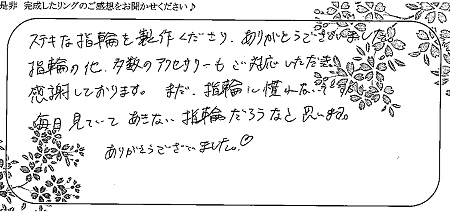 是非 完成したリングのご感想をお聞かせください♪
ステキな指輪を製作くださり、ありがとうございました
指輪の他、多数のアクセサリーもご対応いただき
感謝しております。まだ、指輪に慣れないですが
毎日見ていてあきない指輪だろうなと思います。
ありがとうございました。♡